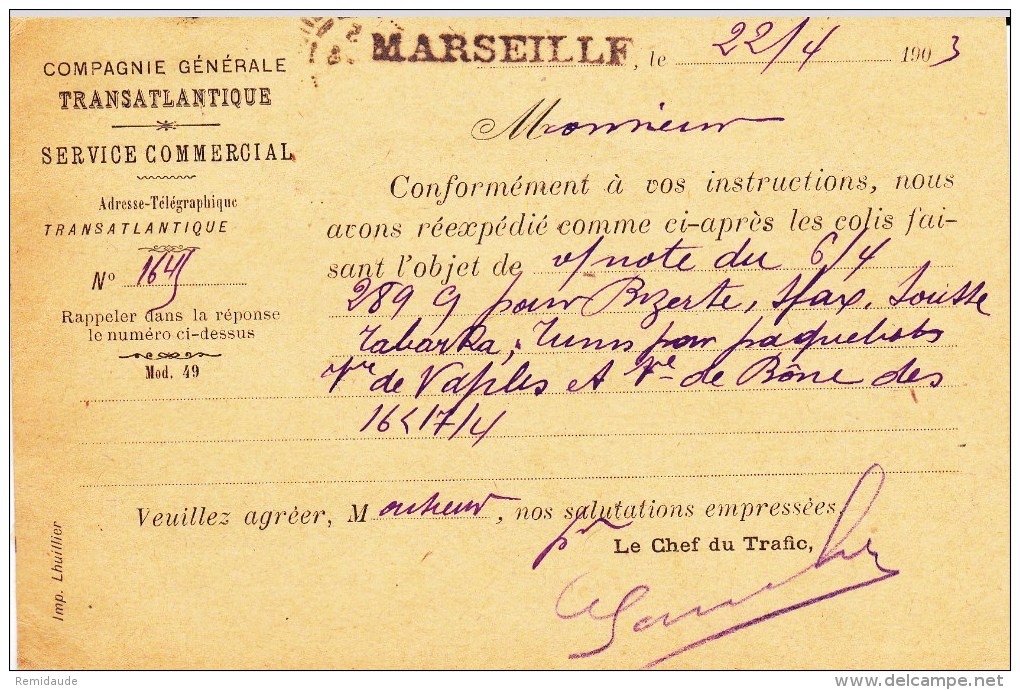 MARSEILLE, le 22/4 1903
COMPAGNIE GÉNÉRALE
TRANSATLANTIQUE
SERVICE COMMERCIAL
Adresse-Télégraphique
TRANSATLANTIQUE
N° 1645
Rappeler dans la réponse
le numéro ci-dessus
Mod. 49
Monsieur
Conformément à vos instructions, nous
avons réexpédié comme ci-après les colis fai-
sant l'objet de v/note du 6/4
289 G pour Bizerte, Sfax, Sousse
Tabarka, Tunis par paquebots
Vle de Naples et Vle de Bône des
16 & 17/4
Veuillez agréer, Monsieur, nos salutations empressées,
pr Le Chef du Trafic,
Imp. Lhuillier
Remidaude
delcampe.net